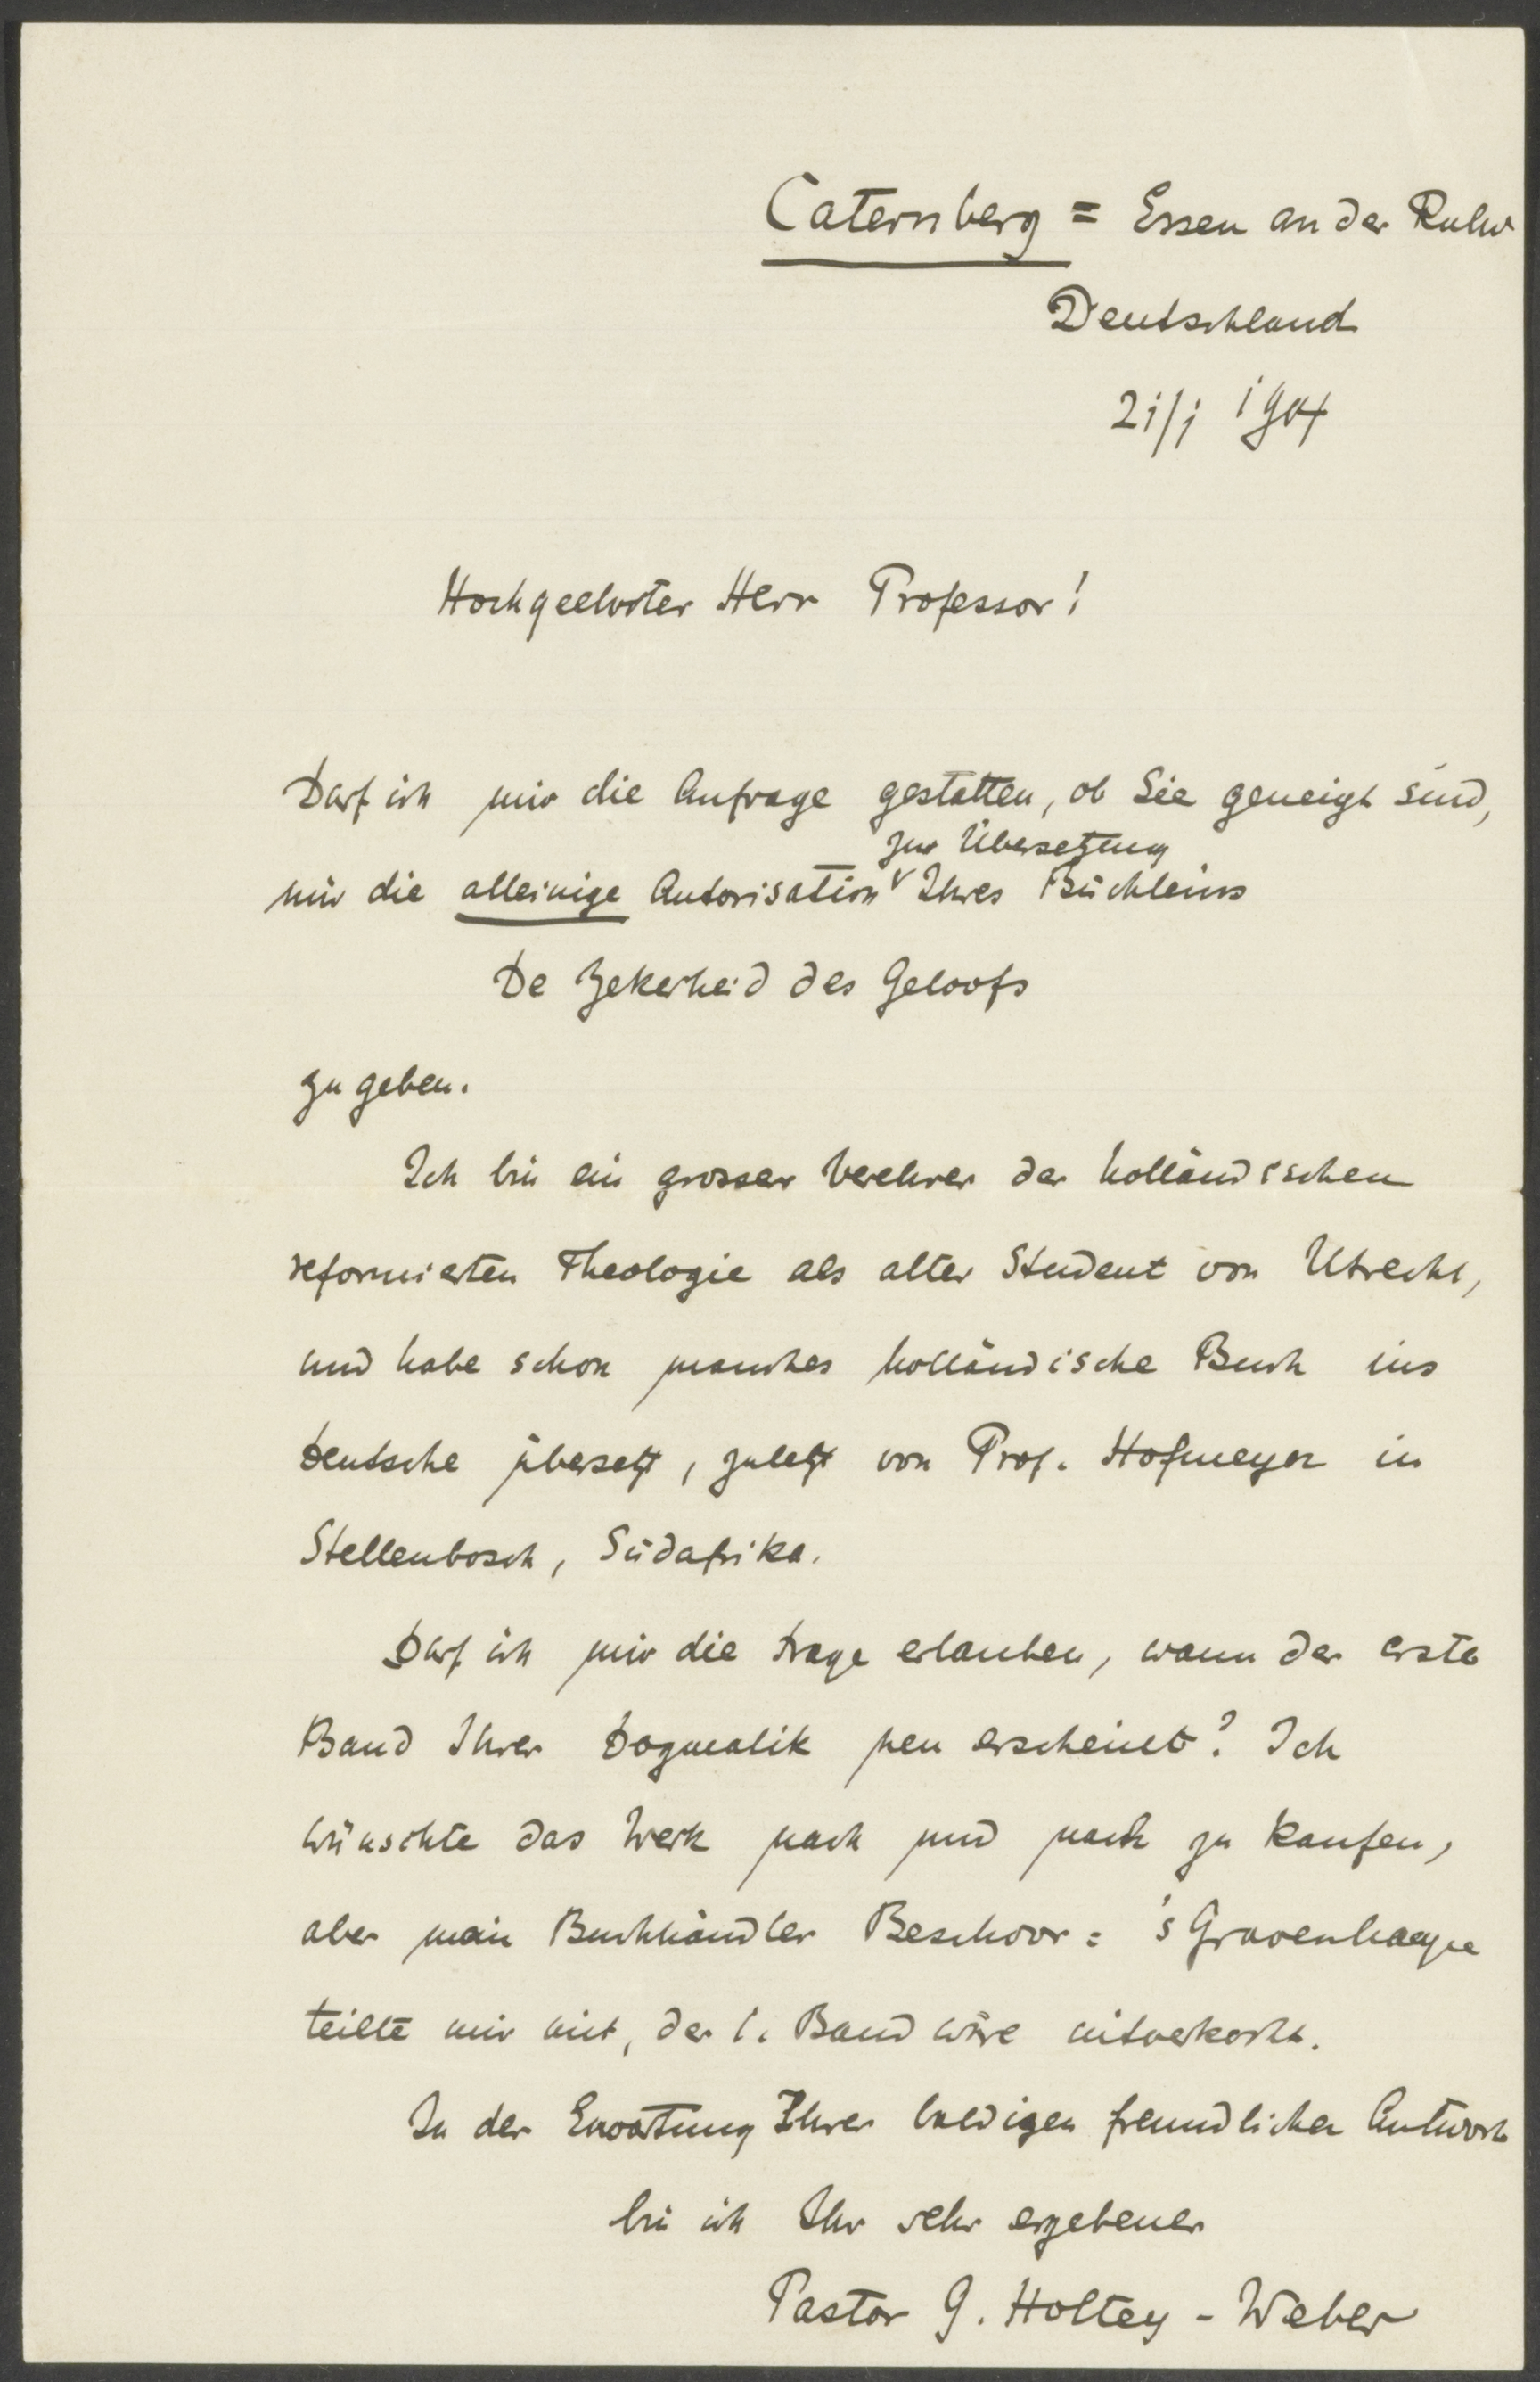 Caternberg = Essen an der Ruhr
Deutschland
21/1 1904
Hochgeehrter Herr Professor!
Darf ich mir die Anfrage gestatten, ob Sie geneigt sind,
zur Übersetzung
mir die alleinige Autorisation Ihres Büchleins
De Zekerheid des Geloofs
zu geben.
Ich bin ein grosser Verehrer der holländischen
reformierten Theologie als alter Student von Utrecht,
und habe schon manches holländische Buch ins
Deutsche übersetzt, zuletzt von Prof. Hofmeyer in
Stellenbosch, Südafrika.
Darf ich mir die Frage erlauben, wann der erste
Band Ihrer Dogmatik neu erscheint? Ich
wünschte das Werk nach und nach zu kaufen,
aber mein Buchhändler Beschoor = 's Gravenhage
teilte mir mit, der 1. Band wäre uitverkocht.
In der Erwartung Ihrer baldigen freundlichen Antwort
bin ich Ihr sehr ergebener
Pastor G. Holtey - Weber